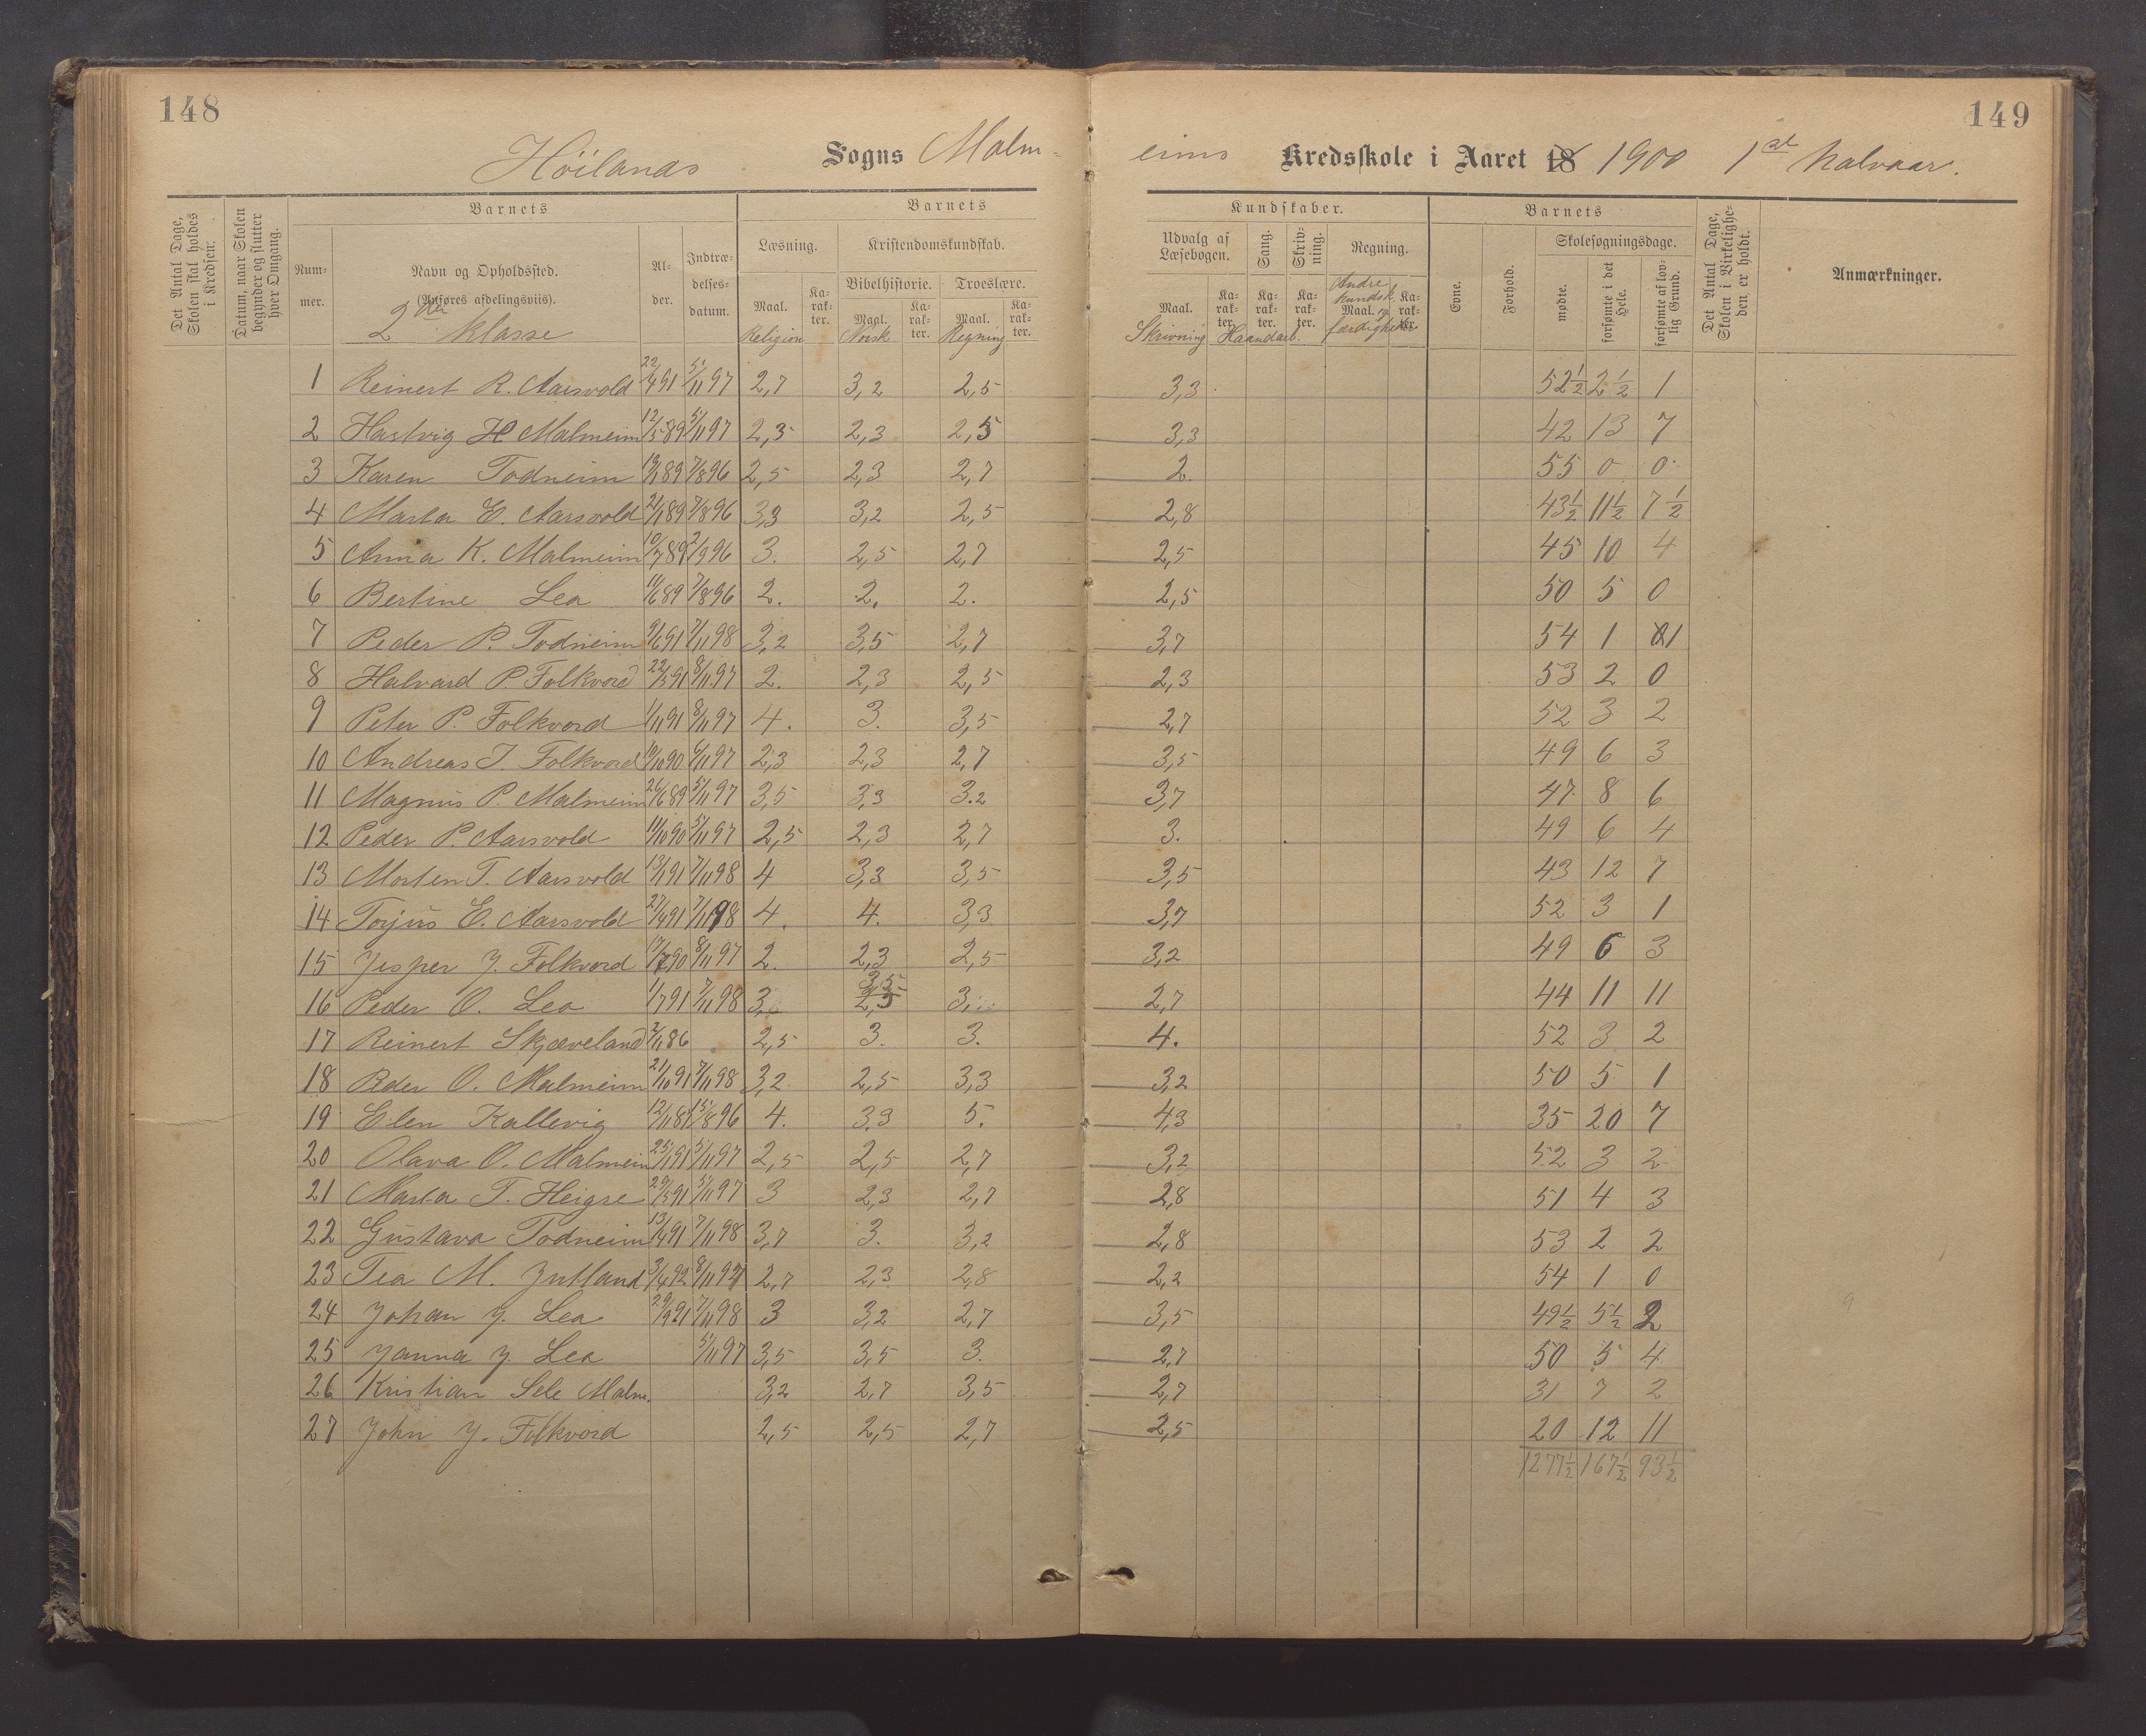 148
149
Höilands Sogns Malm-
eims Kredsskole i Aaret 18 1900 1st halvaar.
Det Antal Dage, Skolen skal holdes i Kredsen.
Datum, naar Skolen begynder og slutter hver Omgang.
Barnets
Num-mer.
Navn og Opholdssted.
(Anføres afdelingsviis).
2den Klasse
Al-der.
Indtræ-delses-datum.
Barnets
Læsning.
Kristendomskundskab.
Bibelhistorie.
Troeslære.
Maal.
Ka-rak-ter.
Maal.
Ka-rak-ter.
Maal.
Ka-rak-ter.
Religion Norsk Regning
Kundskaber.
Udvalg af Læsebogen.
Sang.
Skriv-ning.
Regning.
Maal.
Ka-rak-ter.
Ka-rak-ter.
Ka-rak-ter.
Maal.
Ka-rak-ter.
Skrivning Haandarb. Andre Kundsk. og færdigheder
Barnets
Evne.
Forhold.
Skolesøgningsdage.
mødte.
forsømte i det Hele.
forsømte af lov-lig Grund.
Det Antal Dage, Skolen i Virkelighe-den er holdt.
Anmærkninger.
1 Reinert R. Aarsvold 22/4 91 5/11 97 2,7 3,2 2,5 3,3 52½ 2½ 1
2 Hartvig H Malmeim 12/5 89 5/11 97 2,3 2,3 2,5 3,3 42 13 7
3 Karen Todneim 19/1 89 7/8 96 2,5 2,3 2,7 2. 55 0 0
4 Marta E. Aarsvold 21/1 89 7/8 96 3,3 3,2 2,5 2,8 43½ 11½ 7½
5 Anna K. Malmeim 10/7 89 2/9 96 3. 2,5 2,7 2,5 45 10 4
6 Bertine Lea 11/6 89 7/8 96 2. 2. 2. 2,5 50 5 0
7 Peder P. Todneim 9/6 91 7/11 98 3,2 3,5 2,7 3,7 54 1 1
8 Halvard P. Folkvord 22/3 91 8/11 97 2. 2,3 2,5 2,3 53 2 0
9 Peter P. Folkvord 1/11 91 8/11 97 4. 3. 3,5 2,7 52 3 2
10 Andreas J. Folkvord 10/10 90 6/11 97 2,3 2,3 2,7 3,5 49 6 3
11 Magnus P. Malmeim 26/6 89 5/11 97 3,5 3,3 3.2 3,7 47 8 6
12 Peder P. Aarsvold 11/10 90 5/11 97 2,5 2,3 2,7 3. 49 6 4
13 Morten T. Aarsvold 13/1 91 7/11 98 4 3,3 3,5 3,5 43 12 7
14 Torjus E. Aarsvold 27/4 91 7/11 98 4. 4. 3,3 3,7 52 3 1
15 Jesper J. Folkvord 17/7 90 8/11 97 2. 2,3 2,5 3,2 49 6 3
16 Peder O. Lea 1/7 91 7/11 98 3. 3,5 2,5 3. 2,7 44 11 11
17 Reinert Skjæveland 2/1 86 2,5 3. 3. 4. 52 3 2
18 Peder O. Malmeim 21/10 91 7/11 98 3,2 2,5 3,3 3,2 50 5 1
19 Elen Kallevig 12/11 87 15/8 96 4. 3.3 5. 4,3 35 20 7
20 Olava O. Malmeim 25/1 91 5/11 97 2,5 2,5 2,7 3,2 52 3 2
21 Marta T. Heigre 29/3 91 5/11 97 3 2,3 2,7 2,8 51 4 3
22 Gustava Todneim 13/4 91 7/11 98 3,7 3. 3,2 2,8 53 2 2
23 Tea M. Jutland 3/4 92 8/11 97 2,7 2,3 2,8 2,2 54 1 0
24 Johan J. Lea 29/9 91 7/11 98 3 3,2 2,7 3,5 49½ 5½ 2
25 Janna J. Lea 5/11 97 3,5 3,5 3. 2,7 50 5 4
26 Kristian Sele Malm. 3,2 2,7 3,5 2,7 31 7 2
27 John J. Folkvord 2,5 2,5 2,7 2,5 20 12 11
1277½ 167½ 93½